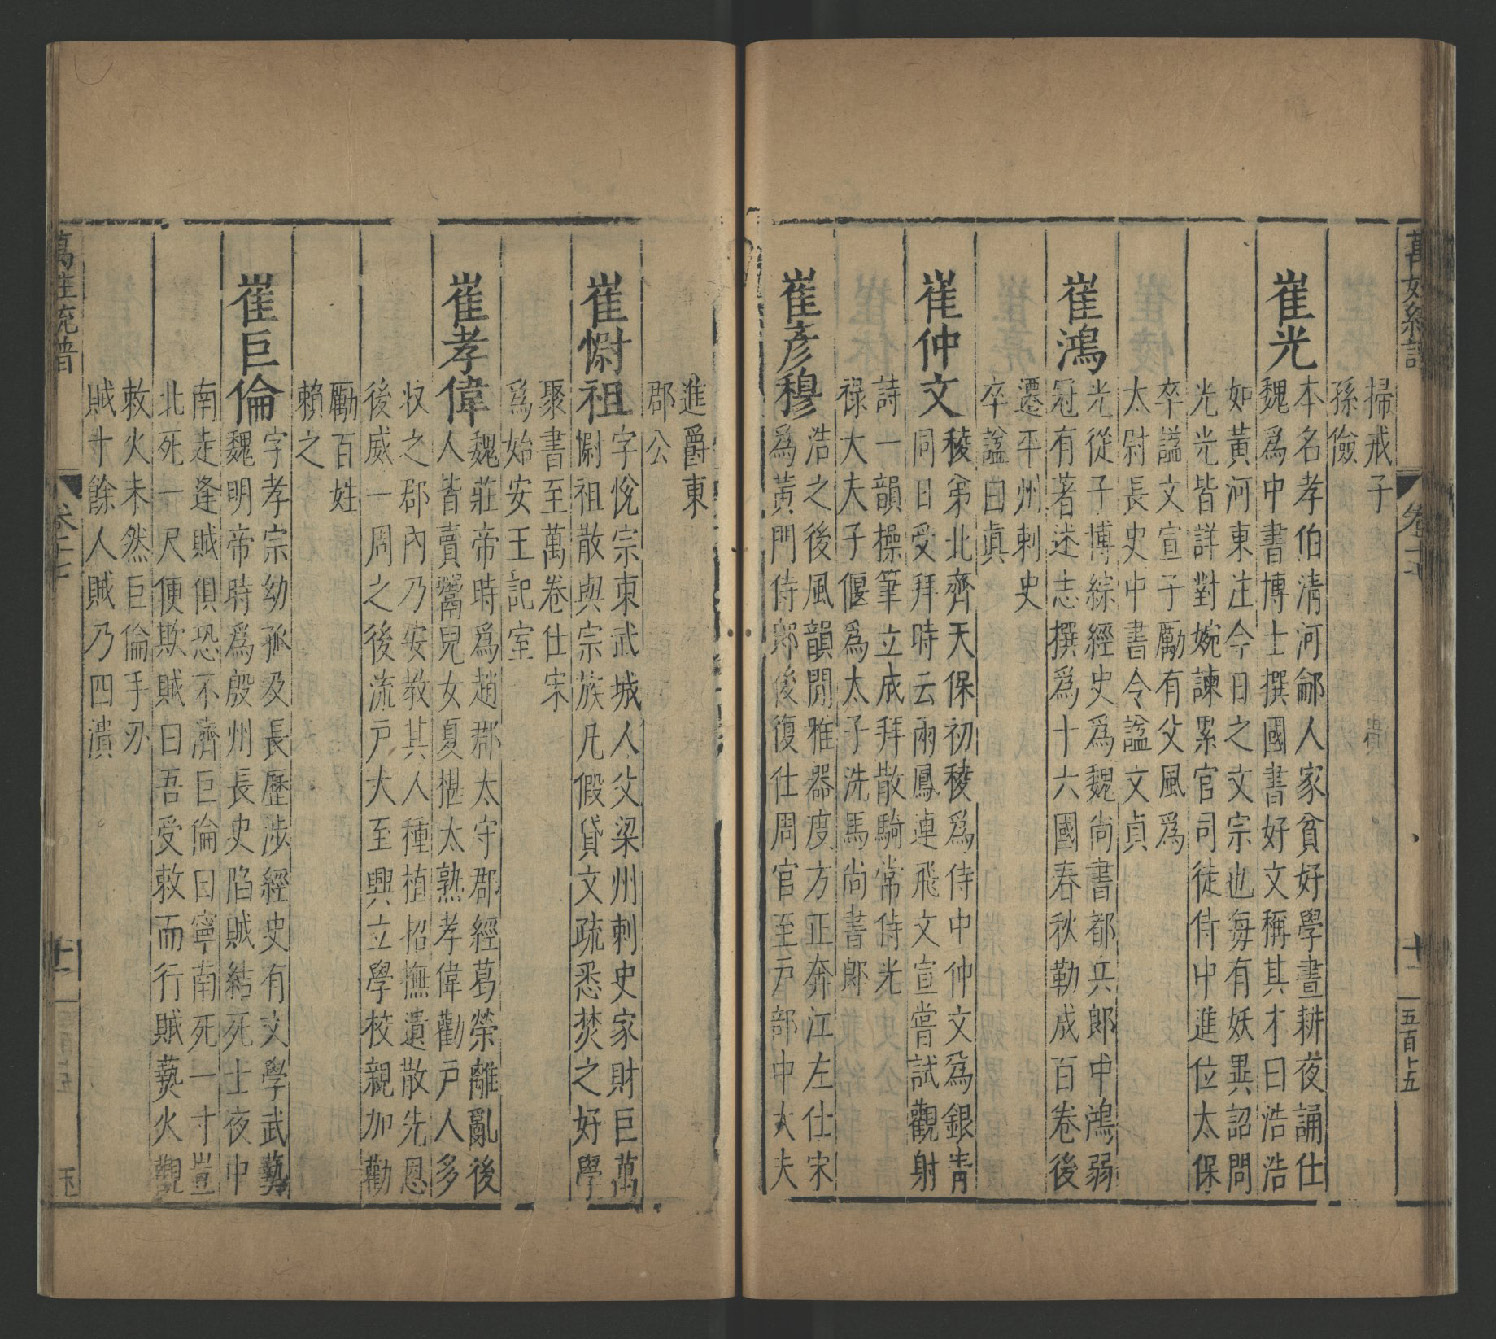 掃戒子
孫儉
崔光
本名孝伯清河鄃人家貧好學晝耕夜誦仕
魏爲中書博士撰國書好文稱其才曰浩浩
如黃河東注今日之文宗也每有妖異詔問
光光皆詳對婉諫累官司徒侍中進位太保
卒謚文宣子勵有父風爲
太尉長史中書令謚文貞
崔鴻
光從子博綜經史爲魏尚書都兵郎中鴻弱
冠有著述志撰爲十六國春秋勒成百卷後
遷平州刺史
卒謚曰眞
崔仲文
稜弟北齊天保初稜爲侍中仲文爲銀青
同日受拜時云兩鳳連飛文宣嘗試觀射
詩一韻操筆立成拜散騎常侍光
祿大夫子偃爲太子洗馬尚書郎
崔彥穆
浩之後風韻閒雅器度方正奔江左仕宋
爲黃門侍郎後復仕周官至戶部中大夫
進爵東
郡公
崔慰祖
字悅宗東武城人父梁州刺史家財巨萬
慰祖散與宗族凡假貸文疏悉焚之好學
聚書至萬卷仕宋
爲始安王記室
崔孝偉
魏莊帝時爲趙郡太守郡經葛榮離亂後
人皆賣鬻兒女夏椹太熟孝偉勸戶人多
收之郡內乃安教其人種植招撫遺散先恩
後威一周之後流戶大至興立學校親加勸
勵百姓
賴之
崔巨倫
字孝宗幼孤及長歷涉經史有文學武藝
魏明帝時爲殷州長史陷賊結死士夜中
南走逢賊俱恐不濟巨倫曰寧南死一寸豈
北死一尺便欺賊曰吾受敕而行賊爇火觀
敕火未然巨倫手刃
賊十餘人賊乃四潰
萬姓統譜